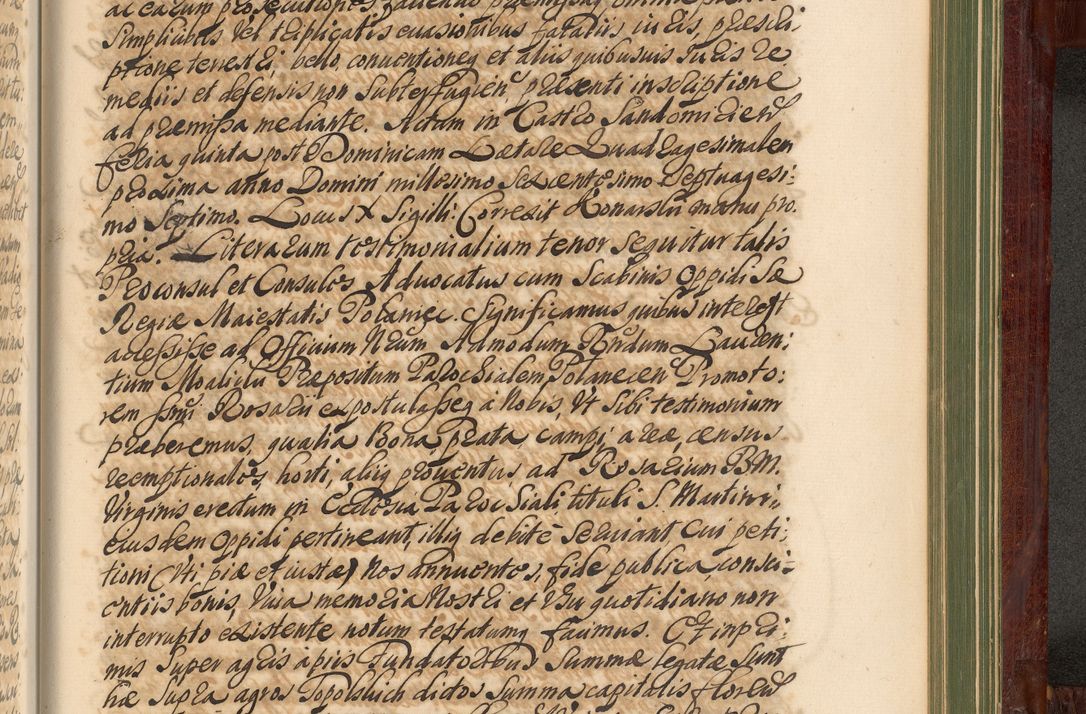 ac earum prosecutiones faciendo præmissas omnine
simplicibus vel triplicatis euasionibus fatalis, iuris, præscri-
ptione terrestri, bello, conuentiones et aliis quibusuis Iuris re
mediis et defensis non subterfugien præsenti inscriptione
ad præmissa mediante. Actum in Castro Sandomirien
feria quinta post Dominicam Lætare Quadragesimalem
proxima anno Domini millesimo sexcentesimo septuagesi:
mo septimo. Locus X Sigilli. Correxit Konarski manu pro.
pria. Literarum testimonialium tenor sequitur talis
Proconsul et Consules Aduocatus cum Scabinis Oppidi Sæ
Regiæ Maiestatis Polaniec. Significamus quibus interest
accessisse ad Officium Nrum Admodum Rndum Lauren:
tium Moalicki Præpositum Parochialem Polanecen Promoto:
rem ssmi Rosarii expostulasseq a Nobis, Vt sibi testimonium
præberemus, qualia Bona, prata, campi, areæ, census
reemptionales, horti, aliiq prouentus ad Rosarium B.M.
Virginis erectum in Ecclesia Parochiali tituli S. Martini
eiusdem Oppidi pertineant, illiq debitè seruiant, Cui peti:
tioni (Vti piæ et iustæ) Nos annuentes, fide publica, consci-
entiis bonis, Viua memoria Nostri et Vsu quotidiano non
interrupto existente notum testatumq facimus. Et inpri:
mis super agris à piis Fundatoribus Summæ legatæ sunt
hæ supra agros Topolskich dictos Summa capitalis floren